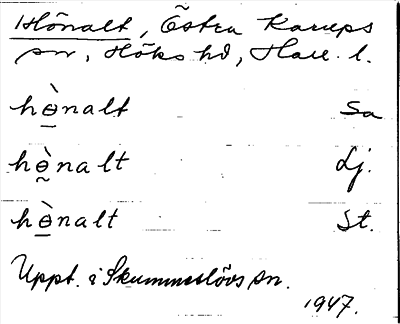 Hönalt, Östra Karups
sn, Höks hd, Hall. l.
hɵ̠̀nalt Sa
hɵ̰̀nalt Lj.
hɵ̠̀nalt St.
Uppt. i Skummeslövs sn.
1947.